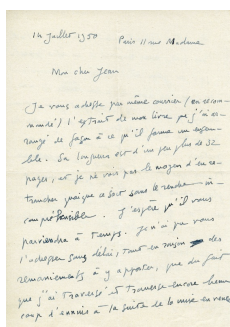 14 Juillet 1950 Paris 11 rue Madame
Mon cher Jean
Je vous adresse par même courrier (en recom-
mandé) l'extrait de mon livre que j'ai ar-
rangé de façon à ce qu'il forme un ensem-
ble. Sa longueur est d'un peu plus de 32
pages, et je ne vois pas le moyen d'en re-
trancher quoique ce soit sans le rendre in-
compréhensible. J'espère qu'il vous
parviendra à temps. Je n'ai pu vous
l'adresser sans délai, tant en raison des
remaniements à y apporter, que du fait
que j'ai traversé et traverse encore beau-
coup d'ennuis à la suite de la mise en vente